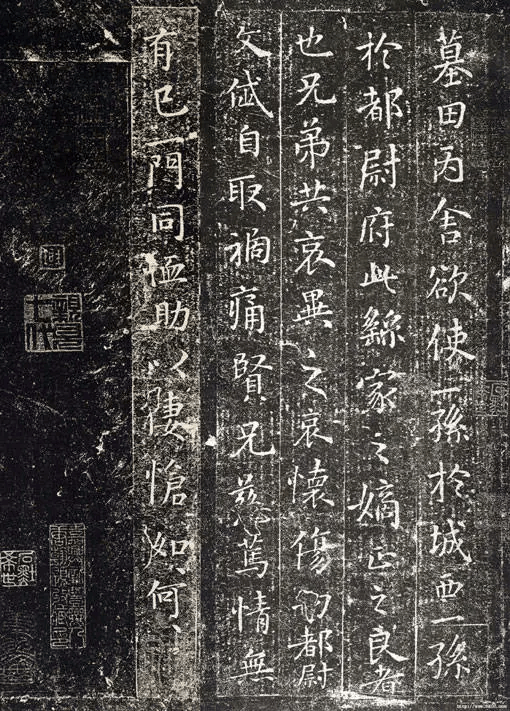 墓田丙舍欲使一孫於城西一孫
於都尉府此繇家之嫡正之良者
也兄弟共哀異之哀懷傷切都尉
文岱自取禍痛賢兄慈篤情無
有已一門同恤助以悽愴如何、、